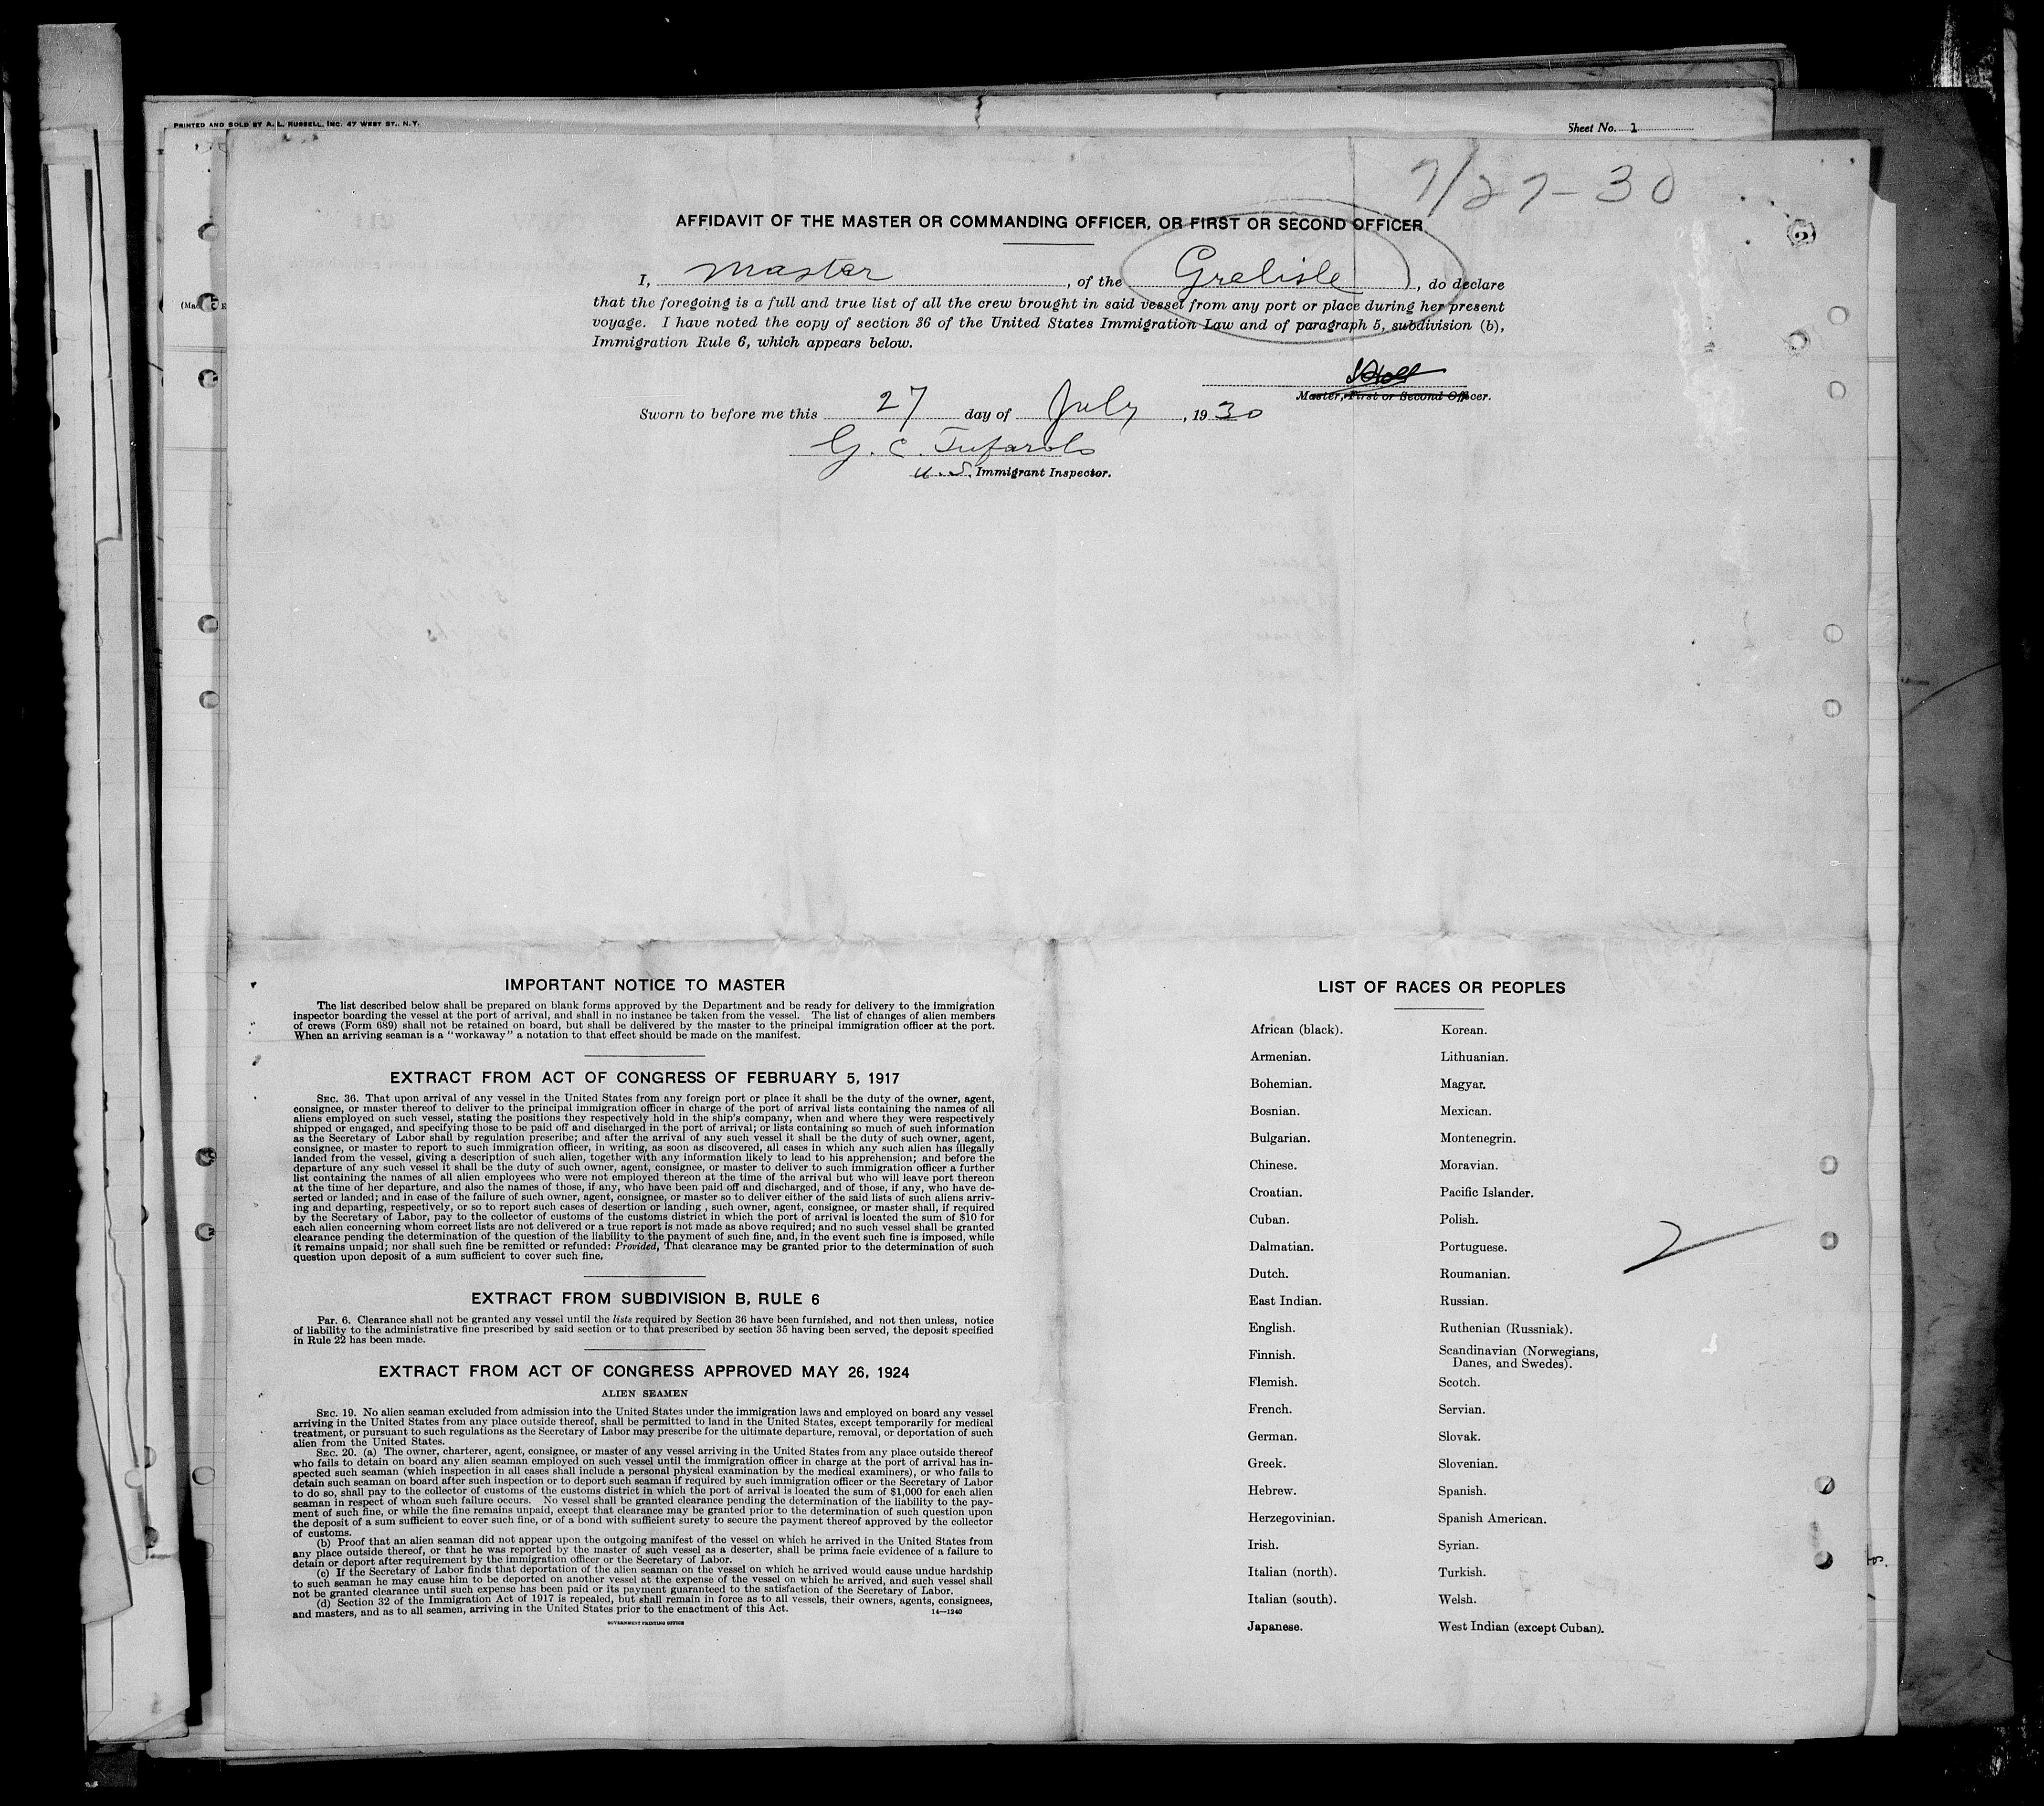 PRINTED AND SOLD BY A. L. RUSSELL, INC. 47 WEST ST., N. Y.
Sheet No. 1
7/27-30
AFFIDAVIT OF THE MASTER OR COMMANDING OFFICER, OR FIRST OR SECOND OFFICER
I, Master, of the Grelisle, do declare
that the foregoing is a full and true list of all the crew brought in said vessel from any port or place during her present
voyage. I have noted the copy of section 36 of the United States Immigration Law and of paragraph 5, subdivision (b),
Immigration Rule 6, which appears below.
Master, First or Second Officer.
Sworn to before me this 27 day of July, 1930
G. C.
U. S. Immigrant Inspector.
IMPORTANT NOTICE TO MASTER
The list described below shall be prepared on blank forms approved by the Department and be ready for delivery to the immigration
inspector boarding the vessel at the port of arrival, and shall in no instance be taken from the vessel. The list of changes of alien members
of crews (Form 689) shall not be retained on board, but shall be delivered by the master to the principal immigration officer at the port.
When an arriving seaman is a "workaway" a notation to that effect should be made on the manifest.
EXTRACT FROM ACT OF CONGRESS OF FEBRUARY 5, 1917
SEC. 36. That upon arrival of any vessel in the United States from any foreign port or place it shall be the duty of the owner, agent,
consignee, or master thereof to deliver to the principal immigration officer in charge of the port of arrival lists containing the names of all
aliens employed on such vessel, stating the positions they respectively hold in the ship's company, when and where they were respectively
shipped or engaged, and specifying those to be paid off and discharged in the port of arrival; or lists containing so much of such information
as the Secretary of Labor shall by regulation prescribe; and after the arrival of any such vessel it shall be the duty of such owner, agent,
consignee, or master to report to such immigration officer, in writing, as soon as discovered, all cases in which any such alien has illegally
landed from the vessel, giving a description of such alien, together with any information likely to lead to his apprehension; and before the
departure of any such vessel it shall be the duty of such owner, agent, consignee, or master to deliver to such immigration officer a further
list containing the names of all alien employees who were not employed thereon at the time of the arrival but who will leave port thereon
at the time of her departure, and also the names of those, if any, who have been paid off and discharged, and of those, if any, who have de-
serted or landed; and in case of the failure of such owner, agent, consignee, or master so to deliver either of the said lists of such aliens arriv-
ing and departing, respectively, or so to report such cases of desertion or landing , such owner, agent, consignee, or master shall, if required
by the Secretary of Labor, pay to the collector of customs of the customs district in which the port of arrival is located the sum of $10 for
each alien concerning whom correct lists are not delivered or a true report is not made as above required; and no such vessel shall be granted
clearance pending the determination of the question of the liability to the payment of such fine, and, in the event such fine is imposed, while
it remains unpaid; nor shall such fine be remitted or refunded: Provided, That clearance may be granted prior to the determination of such
question upon deposit of a sum sufficient to cover such fine.
EXTRACT FROM SUBDIVISION B, RULE 6
Par. 6. Clearance shall not be granted any vessel until the lists required by Section 36 have been furnished, and not then unless, notice
of liability to the administrative fine prescribed by said section or to that prescribed by section 35 having been served, the deposit specified
in Rule 22 has been made.
EXTRACT FROM ACT OF CONGRESS APPROVED MAY 26, 1924
ALIEN SEAMEN
SEC. 19. No alien seaman excluded from admission into the United States under the immigration laws and employed on board any vessel
arriving in the United States from any place outside thereof, shall be permitted to land in the United States, except temporarily for medical
treatment, or pursuant to such regulations as the Secretary of Labor may prescribe for the ultimate departure, removal, or deportation of such
alien from the United States.
SEC. 20. (a) The owner, charterer, agent, consignee, or master of any vessel arriving in the United States from any place outside thereof
who fails to detain on board any alien seaman employed on such vessel until the immigration officer in charge at the port of arrival has in-
spected such seaman (which inspection in all cases shall include a personal physical examination by the medical examiners), or who fails to
detain such seaman on board after such inspection or to deport such seaman if required by such immigration officer or the Secretary of Labor
to do so, shall pay to the collector of customs of the customs district in which the port of arrival is located the sum of $1,000 for each alien
seaman in respect of whom such failure occurs. No vessel shall be granted clearance pending the determination of the liability to the pay-
ment of such fine, or while the fine remains unpaid, except that clearance may be granted prior to the determination of such question upon
the deposit of a sum sufficient to cover such fine, or of a bond with sufficient surety to secure the payment thereof approved by the collector
of customs.
(b) Proof that an alien seaman did not appear upon the outgoing manifest of the vessel on which he arrived in the United States from
any place outside thereof, or that he was reported by the master of such vessel as a deserter, shall be prima facie evidence of a failure to
detain or deport after requirement by the immigration officer or the Secretary of Labor.
(c) If the Secretary of Labor finds that deportation of the alien seaman on the vessel on which he arrived would cause undue hardship
to such seaman he may cause him to be deported on another vessel at the expense of the vessel on which he arrived, and such vessel shall
not be granted clearance until such expense has been paid or its payment guaranteed to the satisfaction of the Secretary of Labor.
(d) Section 32 of the Immigration Act of 1917 is repealed, but shall remain in force as to all vessels, their owners, agents, consignees,
and masters, and as to all seamen, arriving in the United States prior to the enactment of this Act.
14—1240
GOVERNMENT PRINTING OFFICE
LIST OF RACES OR PEOPLES
African (black). Korean.
Armenian. Lithuanian.
Bohemian. Magyar.
Bosnian. Mexican.
Bulgarian. Montenegrin.
Chinese. Moravian.
Croatian. Pacific Islander.
Cuban. Polish.
Dalmatian. Portuguese.
Dutch. Roumanian.
East Indian. Russian.
English. Ruthenian (Russniak).
Finnish. Scandinavian (Norwegians,
Danes, and Swedes).
Flemish. Scotch.
French. Servian.
German. Slovak.
Greek. Slovenian.
Hebrew. Spanish.
Herzegovinian. Spanish American.
Irish. Syrian.
Italian (north). Turkish.
Italian (south). Welsh.
Japanese. West Indian (except Cuban).
2